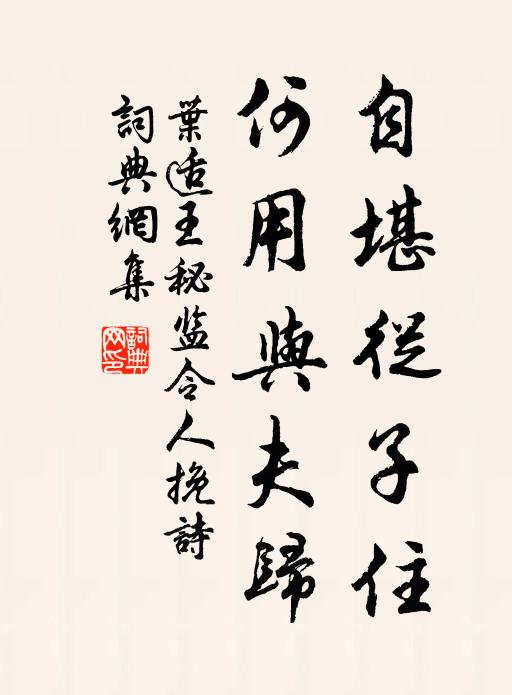 自堪從子住
何用與夫歸
葉适王秘监令人挽詩
詞典網集
詞典网印